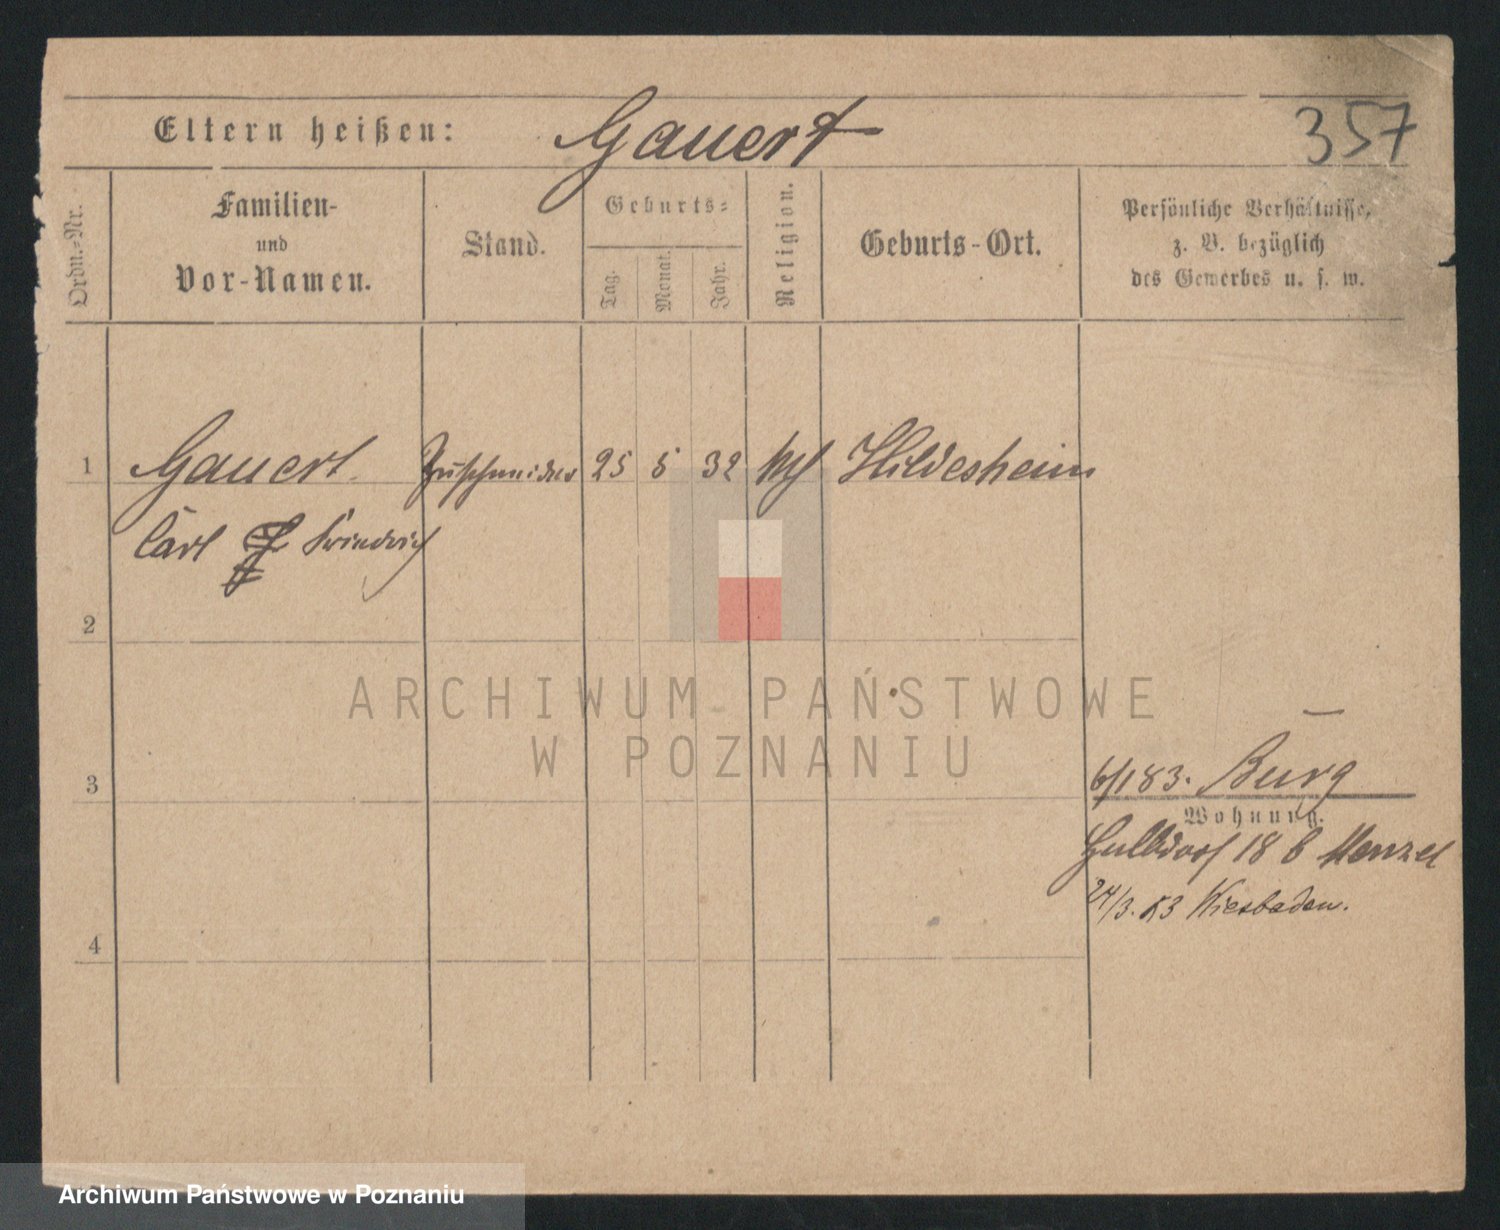 357
Eltern heißen: Gauert
Ordn.-Nr.
Familien-
und
Vor-Namen.
Stand.
Geburts-
Tag.
Monat.
Jahr.
Religion.
Geburts-Ort.
Persönliche Verhältnisse,
z. B. bezüglich
des Gewerbes u. s. w.
1 Gauert Zuschneider 25 5 32 Hildesheim
Carl Friedrich
2
ARCHIWUM PAŃSTWOWE
W POZNANIU
3
6/1 83. Burg
Wohnung.
18 b Menzel
24/3. 83 Wiesbaden.
4
Archiwum Państwowe w Poznaniu